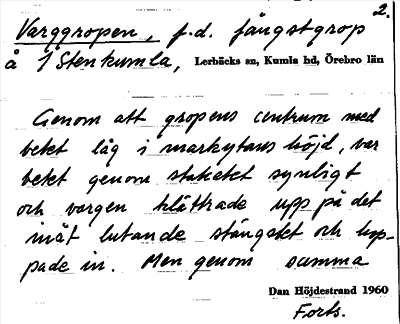 2.
Varggropen, f.d. fångstgrop
å 1 Stenkumla, Lerbäcks sn, Kumla hd, Örebro län
Genom att gropens centrum med
betet låg i markytans höjd, var
betet genom staketet synligt
och vargen klättrade upp på det
inåt lutande stängslet och hop-
pade in. Men genom samma
Dan Höjdestrand 1960
Forts.